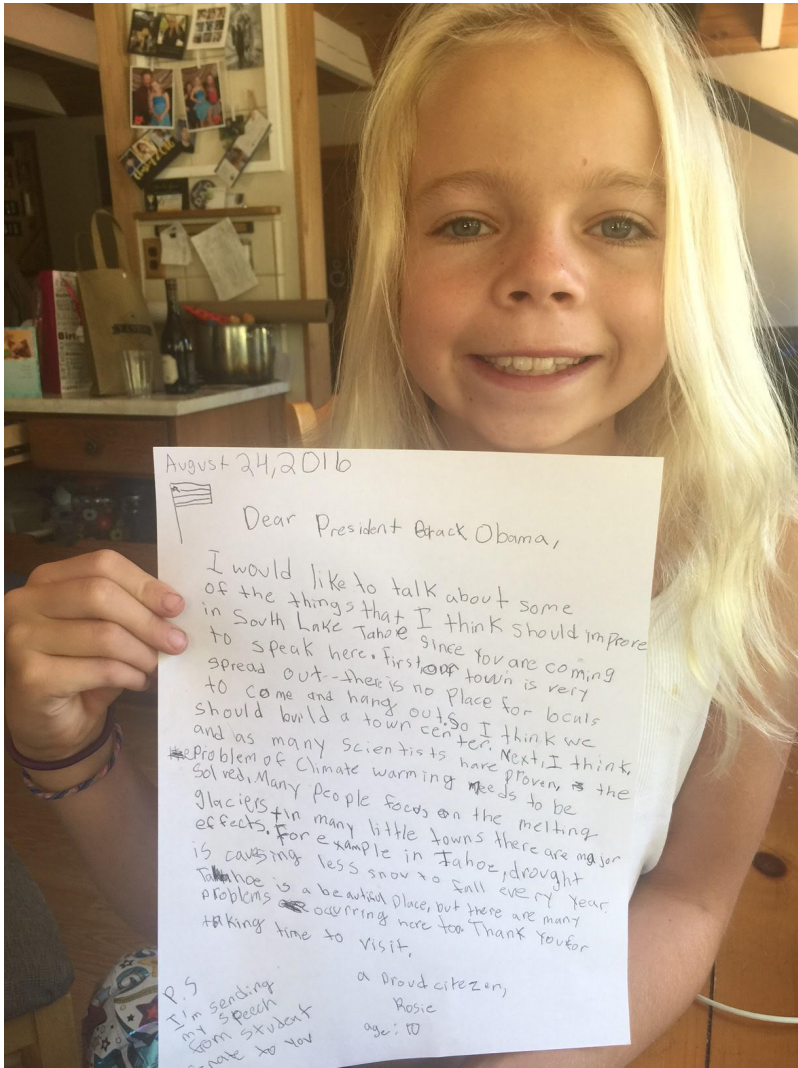 Birt
August 24, 2016
Dear President Barack Obama,
I would like to talk about some
of the things that I think should improve
in South Lake Tahoe since you are coming
to speak here. First, our town is very
spread out--there is no place for locals
to come and hang out. So I think we
should build a town center. Next, I think,
and as many scientists have proven, the
problem of climate warming needs to be
solved. Many people focus on the melting
glaciers, in many little towns there are major
effects. For example in Tahoe, drought
is causing less snow to fall every year.
Tahoe is a beautiful place, but there are many
problems occurring here too. Thank you for
taking time to visit.
a proud citezen,
Rosie
age: 10
P.S
I'm sending
my speech
from student
senate to you